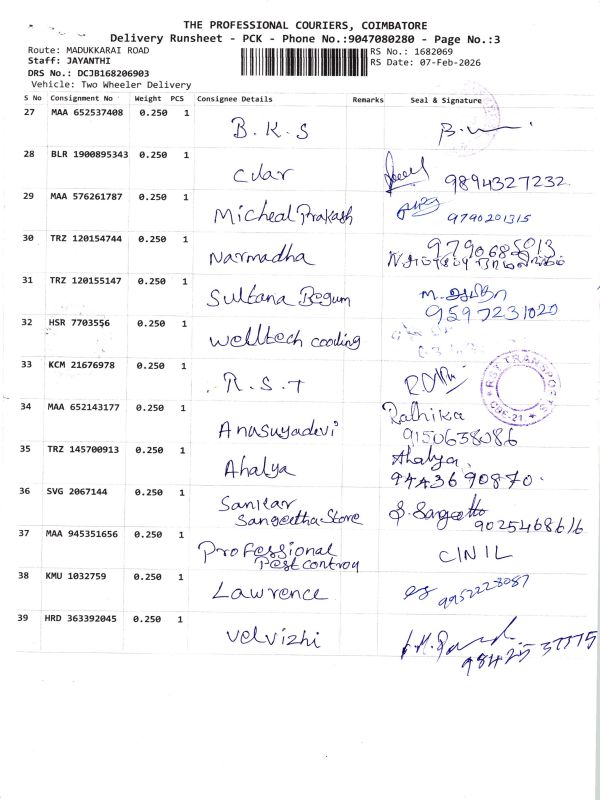 THE PROFESSIONAL COURIERS, COIMBATORE
Delivery Runsheet - PCK - Phone No.:9047080280 - Page No.:3
Route: MADUKKARAI ROAD
RS No.: 1682069
Staff: JAYANTHI
RS Date: 07-Feb-2026
DRS No.: DCJB168206903
Vehicle: Two Wheeler Delivery
S No Consignment No Weight PCS Consignee Details Remarks Seal & Signature
27 MAA 652537408 0.250 1 B.K.S
28 BLR 1900895343 0.250 1 9894327232
29 MAA 576261787 0.250 1 Micheal Prakash 9790201315
30 TRZ 120154744 0.250 1 Narmadha 9790685013
31 TRZ 120155147 0.250 1 Sultana Begum 9597231020
32 HSR 7703556 0.250 1 Welltech cooling
33 KCM 21676978 0.250 1 R.S.T
RST TRANSPORTS
CBE-21
34 MAA 652143177 0.250 1 Anusuyadevi Rathika
9150638086
35 TRZ 145700913 0.250 1 Ahalya Ahalya
9443690870.
36 SVG 2067144 0.250 1 Sankar S. Sangeetha
Sangeetha Store 9025468616
37 MAA 945351656 0.250 1 Professional CINIL
Pest control
38 KMU 1032759 0.250 1 Lawrence 9952228087
39 HRD 363392045 0.250 1 Velvizhi
98425 37775